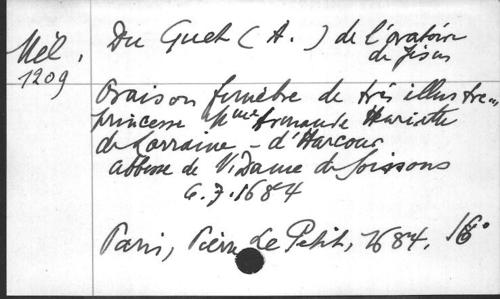 Mél.
1209
Du Guet (A.) de l'oratoire
de Jésus
Oraison funèbre de très illustre
princesse Mme Armande Henriette
de Lorraine - d'Harcour
abbesse de N. Dame de Soissons
6.7.1684
Paris, Pierre de Petit, 1684. 16°